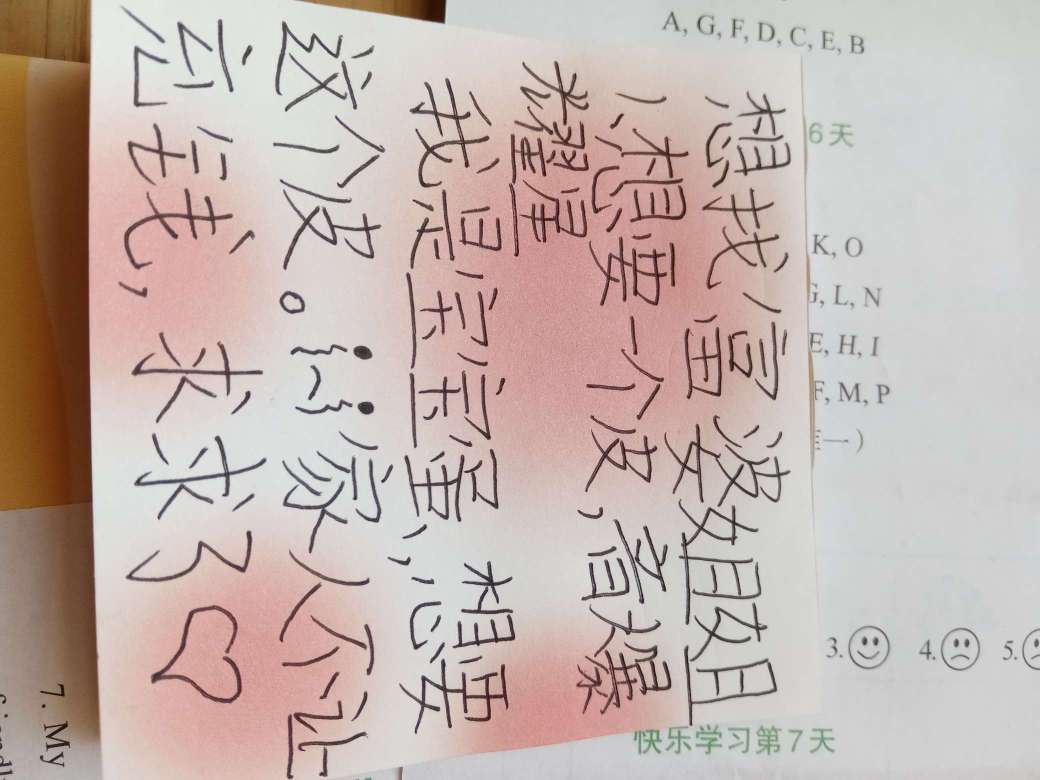 想找富婆姐姐
想要一个皮，音爆
耀星
我是宝宝星，想要
这个皮。家人不让
充钱，求求了♡
A, G, F, D, C, E, B
6天
K, O
G, L, N
E, H, I
F, M, P
一）
3. 4. 5.
快乐学习第7天
7. My